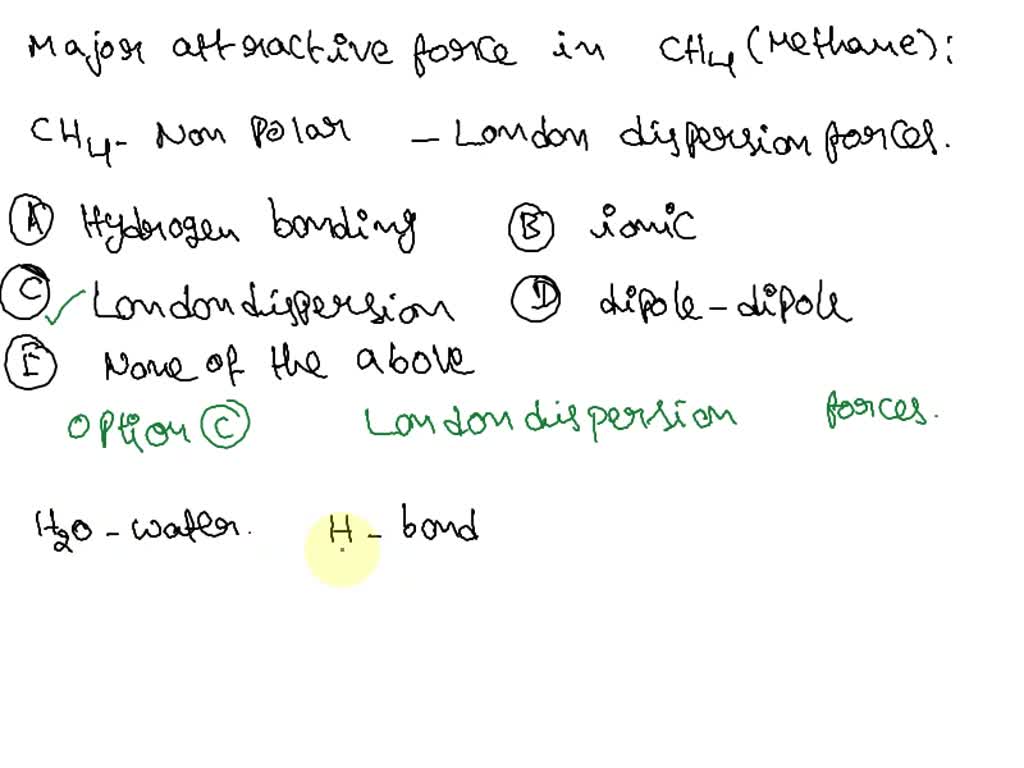 Major attractive force in CH4 (Methane):
CH4 - Non Polar - London dispersion forces.
(A) Hydrogen bonding (B) ionic
(C) ✓ London dispersion (D) dipole - dipole
(E) None of the above
option (C) London dispersion forces.
H2O - water. H - bond